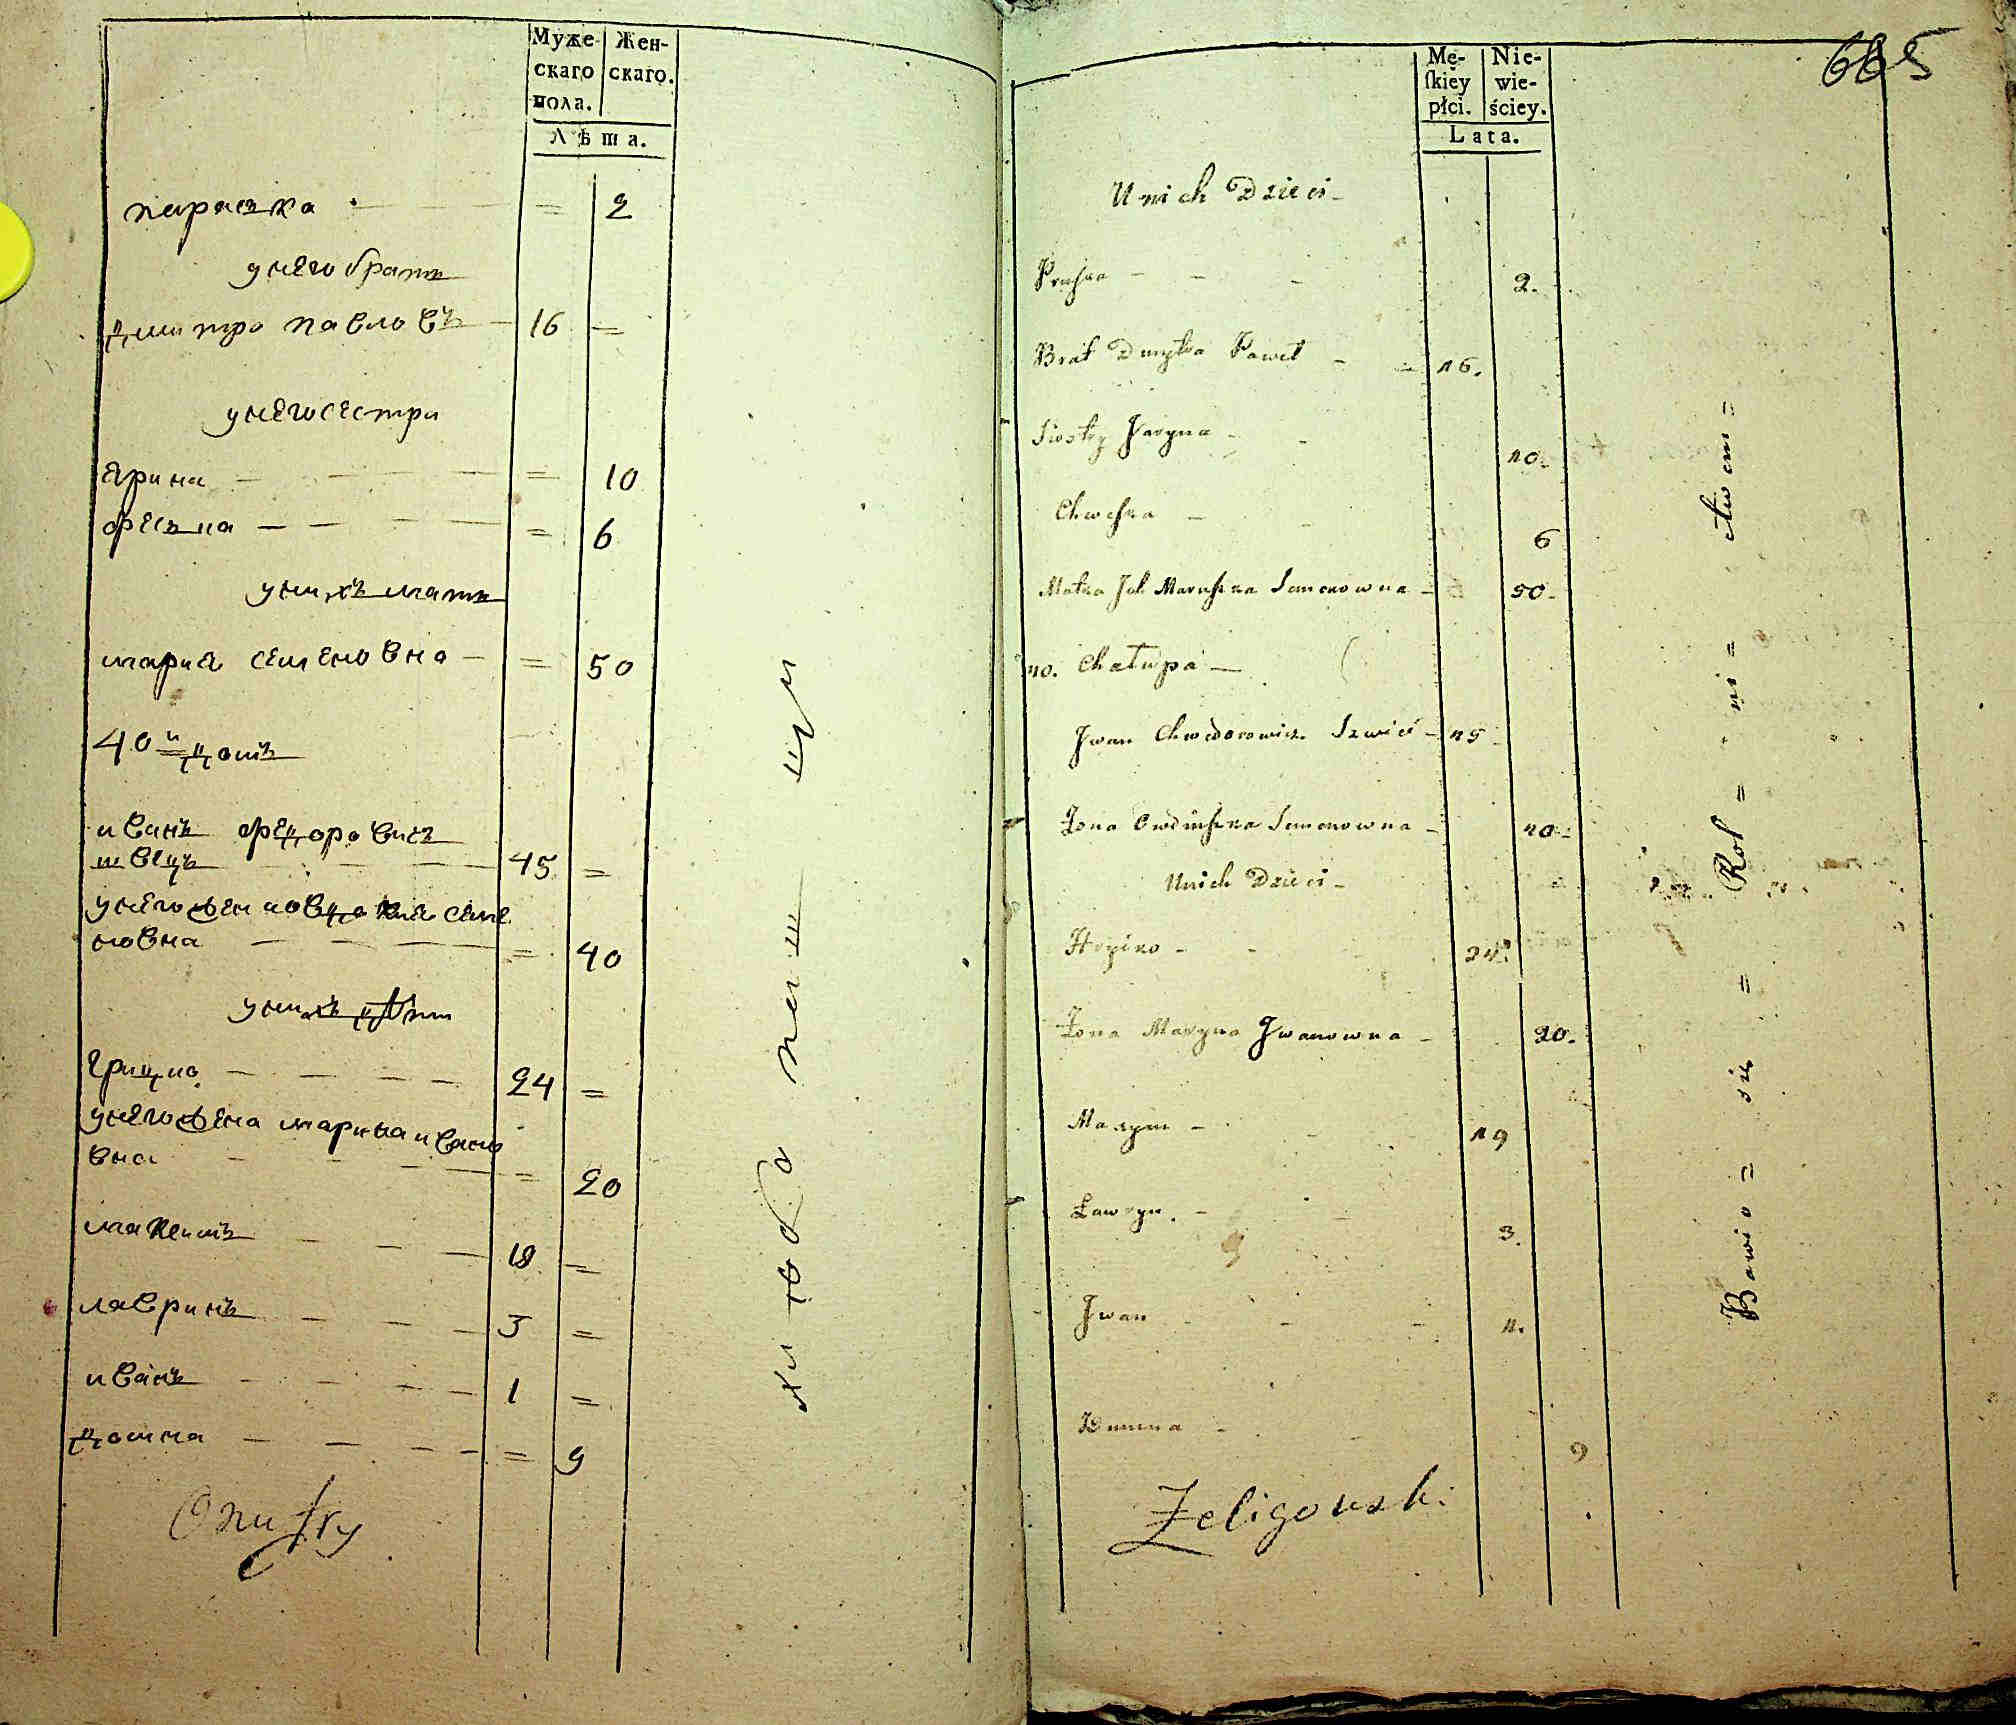 Муже-
скаго
пола.
Жен-
скаго.
Лѣта.
параска - = 2
унего братъ
дмитро павловъ - 16 =
унего сестри
ярина - - - - = 10
феська - - - - = 6
унихъ мать
мария семеновна - = 50
40й домъ
иванъ федоровичъ
швецъ - - - 45 =
унего жена овдокия семе
новна - - - = 40
унихъ дѣти
грицко - - - - 24 =
унего жена марина ивано
вна - - - - = 20
максимъ - - - 19 =
лавринъ - - - 3 =
иванъ - - - - 1 =
домна - - - - = 9
Onufry
хлѣбопашци
665
Mę-
ſkiey
płci.
Nie-
wie-
ściey.
Lata.
U nich Dzieci -
Praska - - - 2.
Brat Dmytro Paweł - - 16.
Siostry Jaryna - - 10.
Chweska - - 6
Matka Ich Maruszka Semenowna - 50.
40. Chałupa -
Jwan Chwedorowicz Szwiec - 45 -
Żona Owdiuszka Semenowna - 40 -
U nich Dzieci -
Hryćko - - 24.
Żona Maryna Jwanowna - 20.
Maxym - - 19
Ławryn. - - 3.
Jwan - - - 1.
Domna - - 9
Żeligowski
Bawio = się = Rol = ni = ctwem =